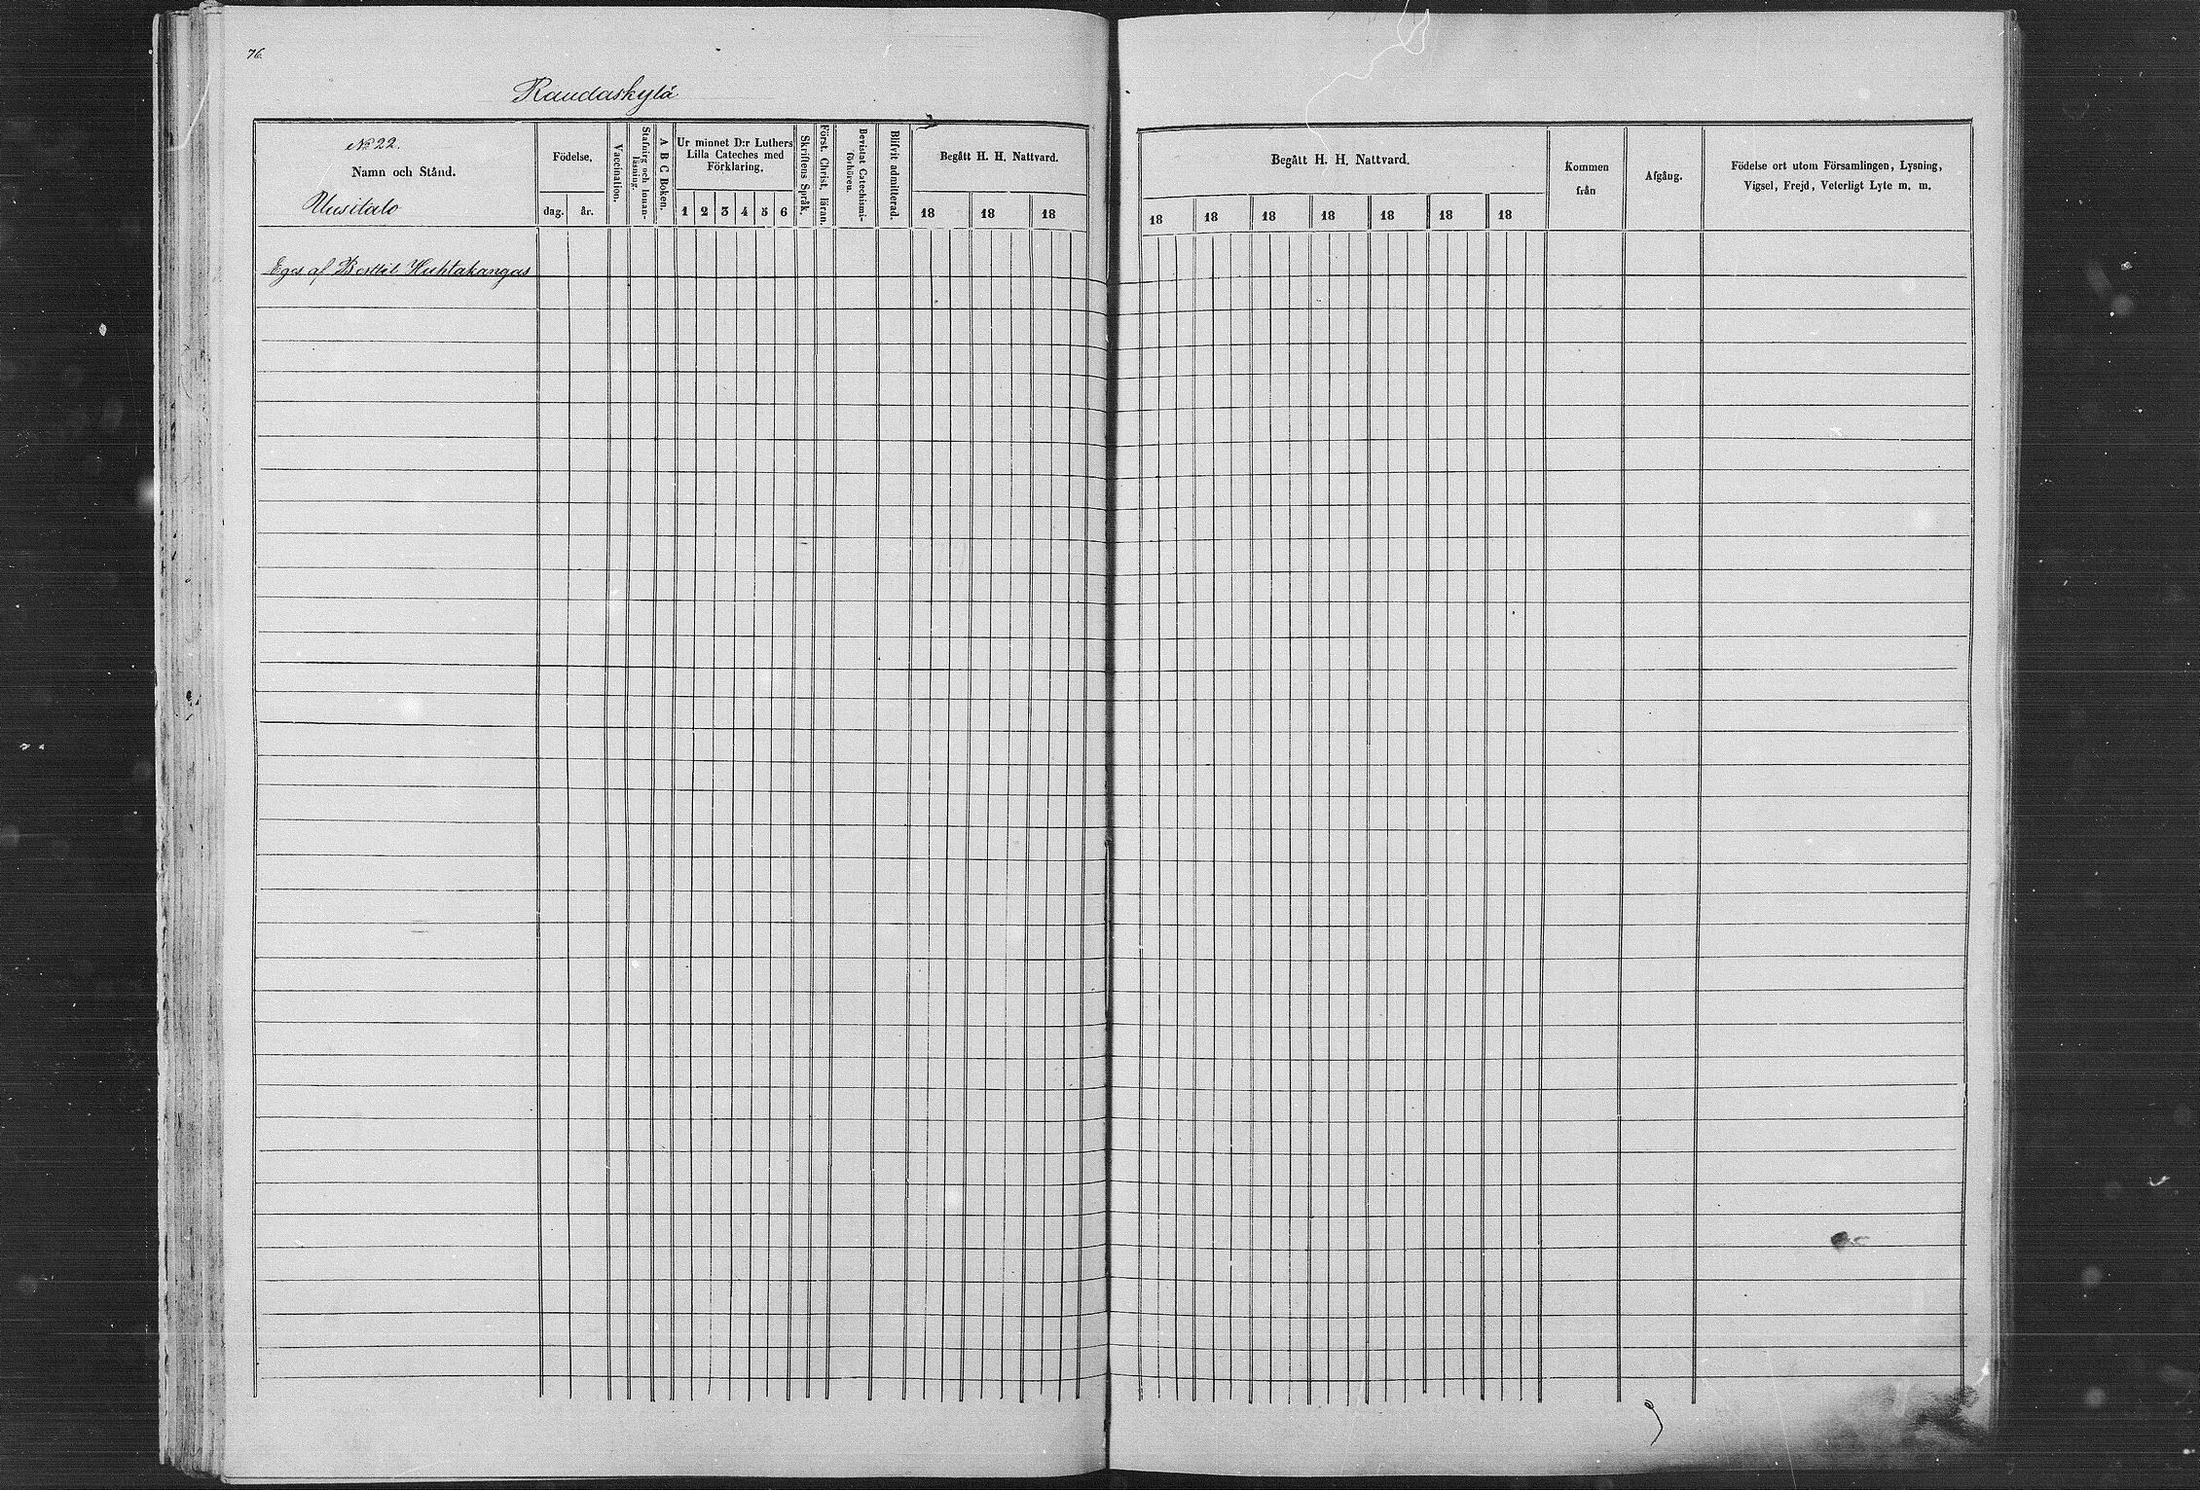 76.
Raudaskylä
No 22.
Namn och Stånd.
Uusitalo
Födelse.
dag. år.
Vaccination.
Stafning och Innan-
läsning.
A B C Boken.
Ur minnet D:r Luthers
Lilla Cateches med
Förklaring.
1 2 3 4 5 6
Skriftens Språk.
Först. Christ. läran.
Bevistat Catechismi-
förhören.
Blifvit admitterad.
Begått H. H. Nattvard.
18 18 18
Eges af Berttil Huhtakangas
Begått H. H. Nattvard.
18 18 18 18 18 18 18
Kommen
från
Afgång.
Födelse ort utom Församlingen, Lysning,
Vigsel, Frejd, Veterligt Lyte m. m.